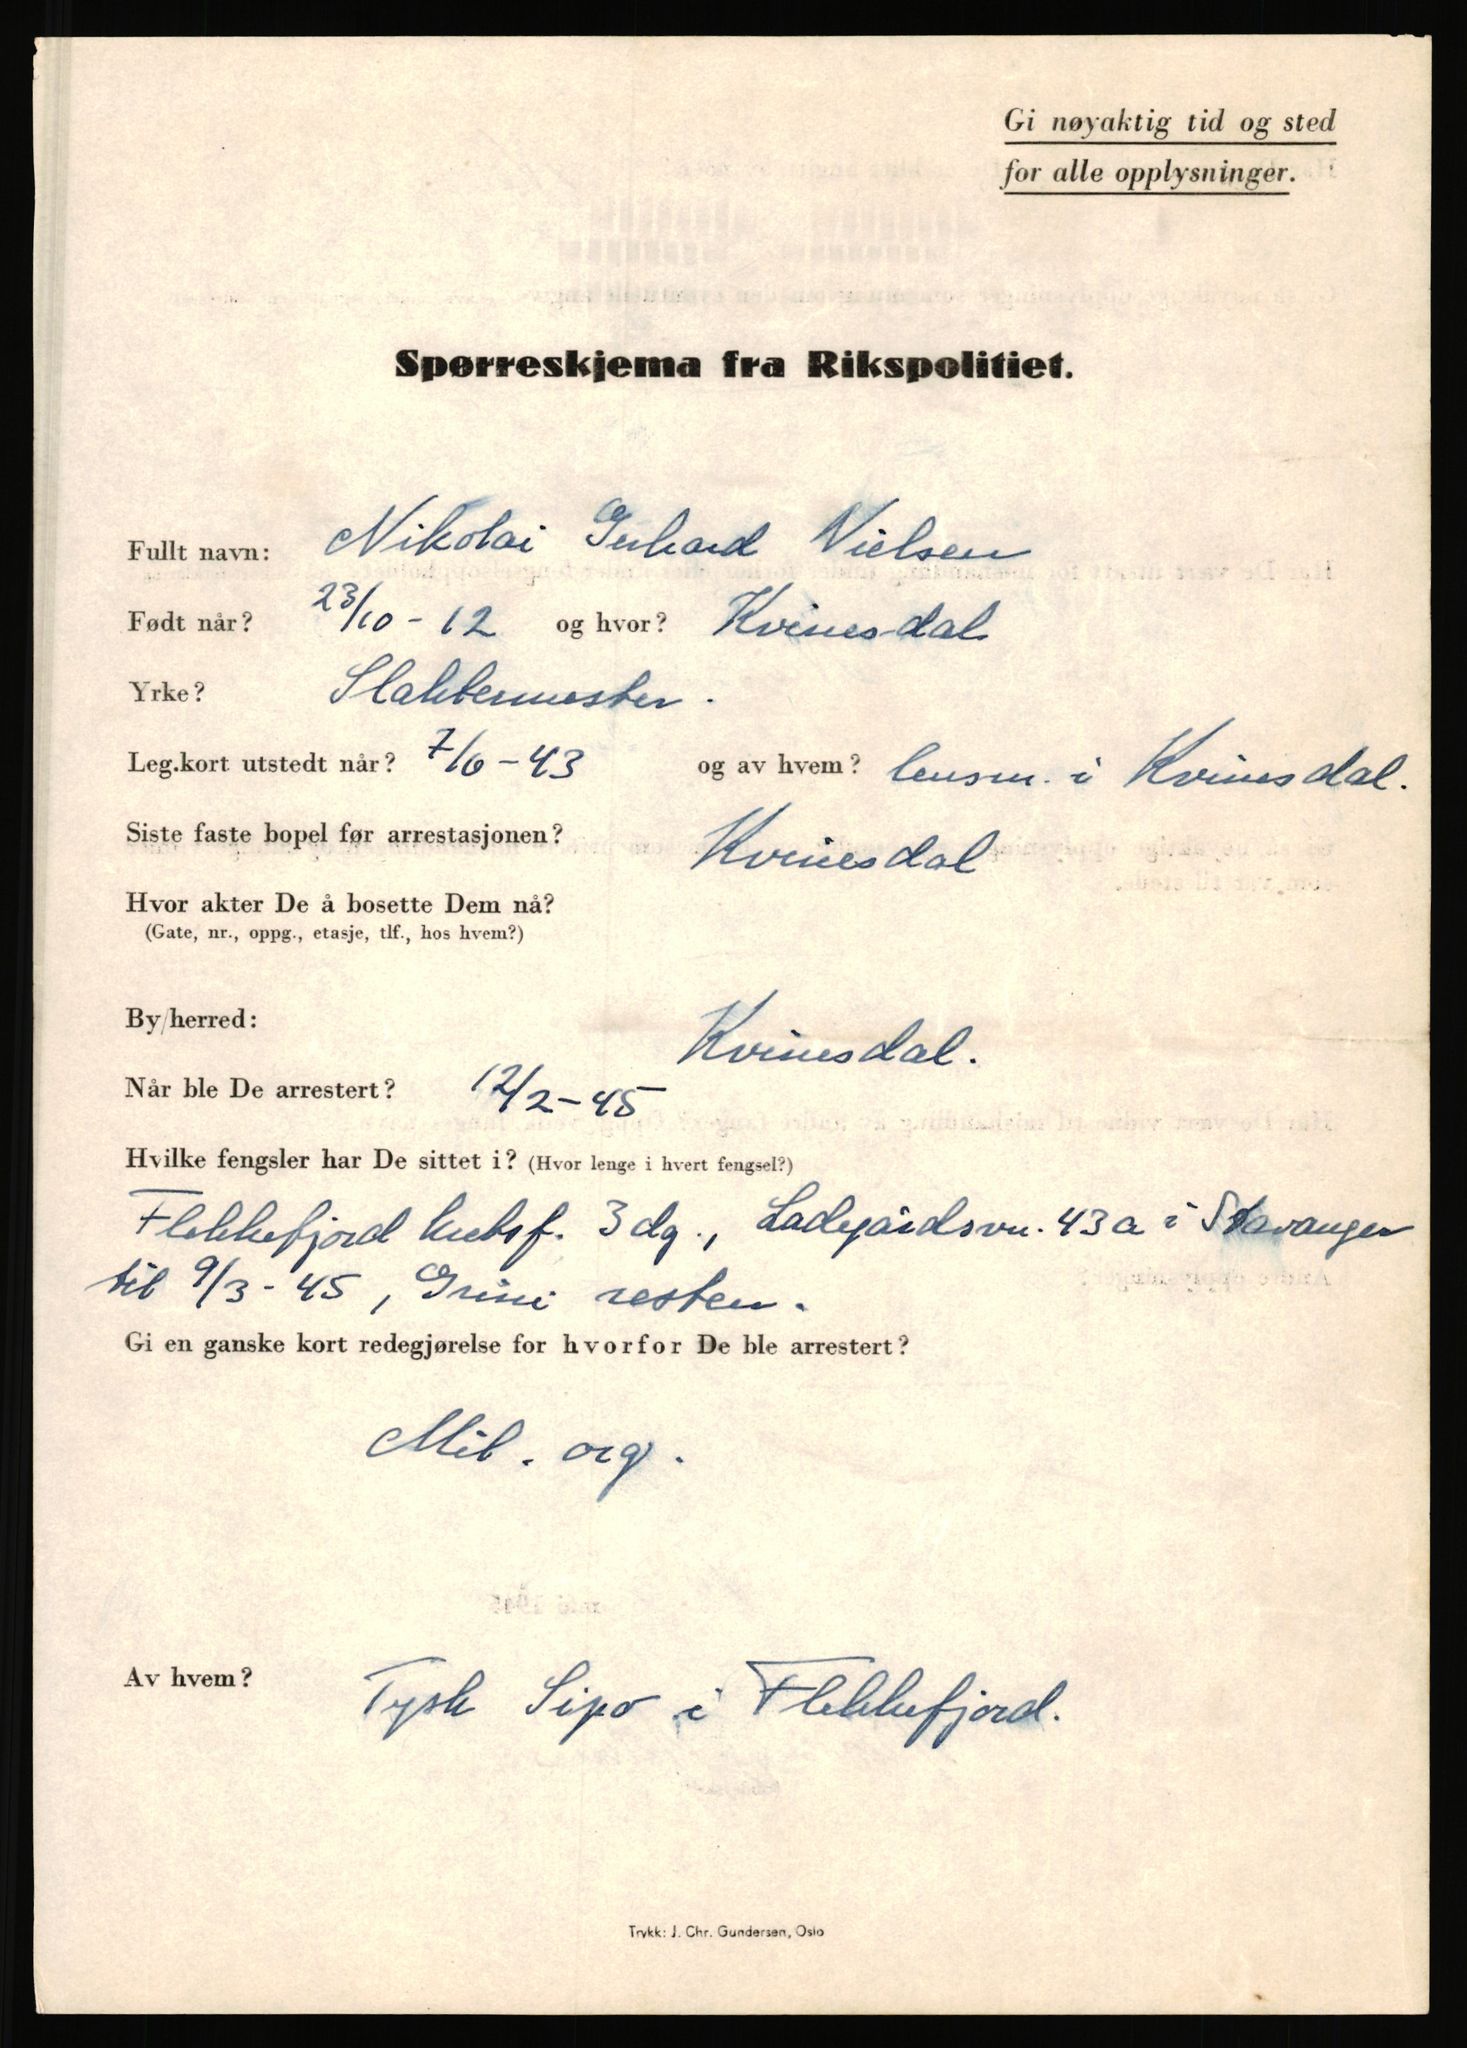 Gi nøyaktig tid og sted
for alle opplysninger.
Spørreskjema fra Rikspolitiet.
Fullt navn: Nikolai Gerhard Nielsen
Født når? 23/10-12 og hvor? Kvinesdal
Yrke? Slaktermester.
Leg.kort utstedt når? 7/6-43 og av hvem? lensm. i Kvinesdal.
Siste faste bopel før arrestasjonen? Kvinesdal
Hvor akter De å bosette Dem nå?
(Gate, nr., oppg., etasje, tlf., hos hvem?)
By/herred: Kvinesdal.
Når ble De arrestert? 12/2-45
Hvilke fengsler har De sittet i? (Hvor lenge i hvert fengsel?)
Flekkefjord kretsf. 3 dg., Ladegårdsvn. 43a i Stavanger
til 9/3-45, Grini resten.
Gi en ganske kort redegjørelse for hvorfor De ble arrestert?
Mil. org.
Av hvem? Tysk Sipo i Flekkefjord.
Trykk: J. Chr. Gundersen, Oslo